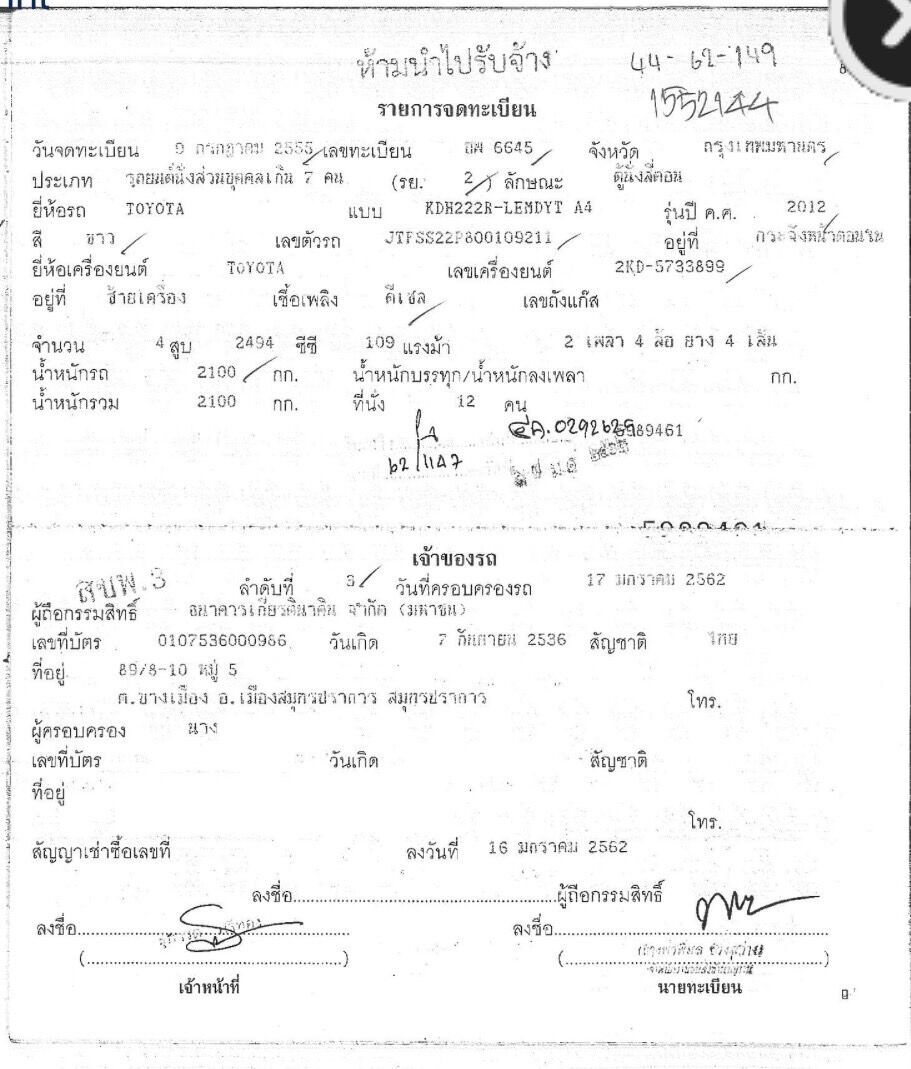 ห้ามนำไปรับจ้าง 44-62-149
1552144
รายการจดทะเบียน
วันจดทะเบียน 9 กรกฎาคม 2555 เลขทะเบียน 6645 จังหวัด กรุงเทพมหานคร
ประเภท รถยนต์นั่งส่วนบุคคลเกิน 7 คน (รย. 2) ลักษณะ ตู้นั่งสี่ตอน
ยี่ห้อรถ TOYOTA แบบ KDH222R-LEMDYT A4 รุ่นปี ค.ศ. 2012
สี ขาว เลขตัวรถ JTFSS22P800109211 อยู่ที่ กระจังหน้าตอนใน
ยี่ห้อเครื่องยนต์ TOYOTA เลขเครื่องยนต์ 2KD-5733899
อยู่ที่ ซ้ายเครื่อง เชื้อเพลิง ดีเซล เลขถังแก๊ส
จำนวน 4 สูบ 2494 ซีซี 109 แรงม้า 2 เพลา 4 ล้อ ยาง 4 เส้น
น้ำหนักรถ 2100 กก. น้ำหนักบรรทุก/น้ำหนักลงเพลา กก.
น้ำหนักรวม 2100 กก. ที่นั่ง 12 คน
62/1147
เจ้าของรถ
สขพ.3 ลำดับที่ 3 วันที่ครอบครองรถ 17 มกราคม 2562
ผู้ถือกรรมสิทธิ์ ธนาคารเกียรตินาคิน จำกัด (มหาชน)
เลขที่บัตร 0107536000986 วันเกิด 7 กันยายน 2536 สัญชาติ ไทย
ที่อยู่ 89/8-10 หมู่ 5
ต.บางเมือง อ.เมืองสมุทรปราการ สมุทรปราการ โทร.
ผู้ครอบครอง นาง
เลขที่บัตร วันเกิด สัญชาติ
ที่อยู่
โทร.
สัญญาเช่าซื้อเลขที่ ลงวันที่ 16 มกราคม 2562
ลงชื่อ ผู้ถือกรรมสิทธิ์
ลงชื่อ ลงชื่อ
(....) (....)
เจ้าหน้าที่ นายทะเบียน